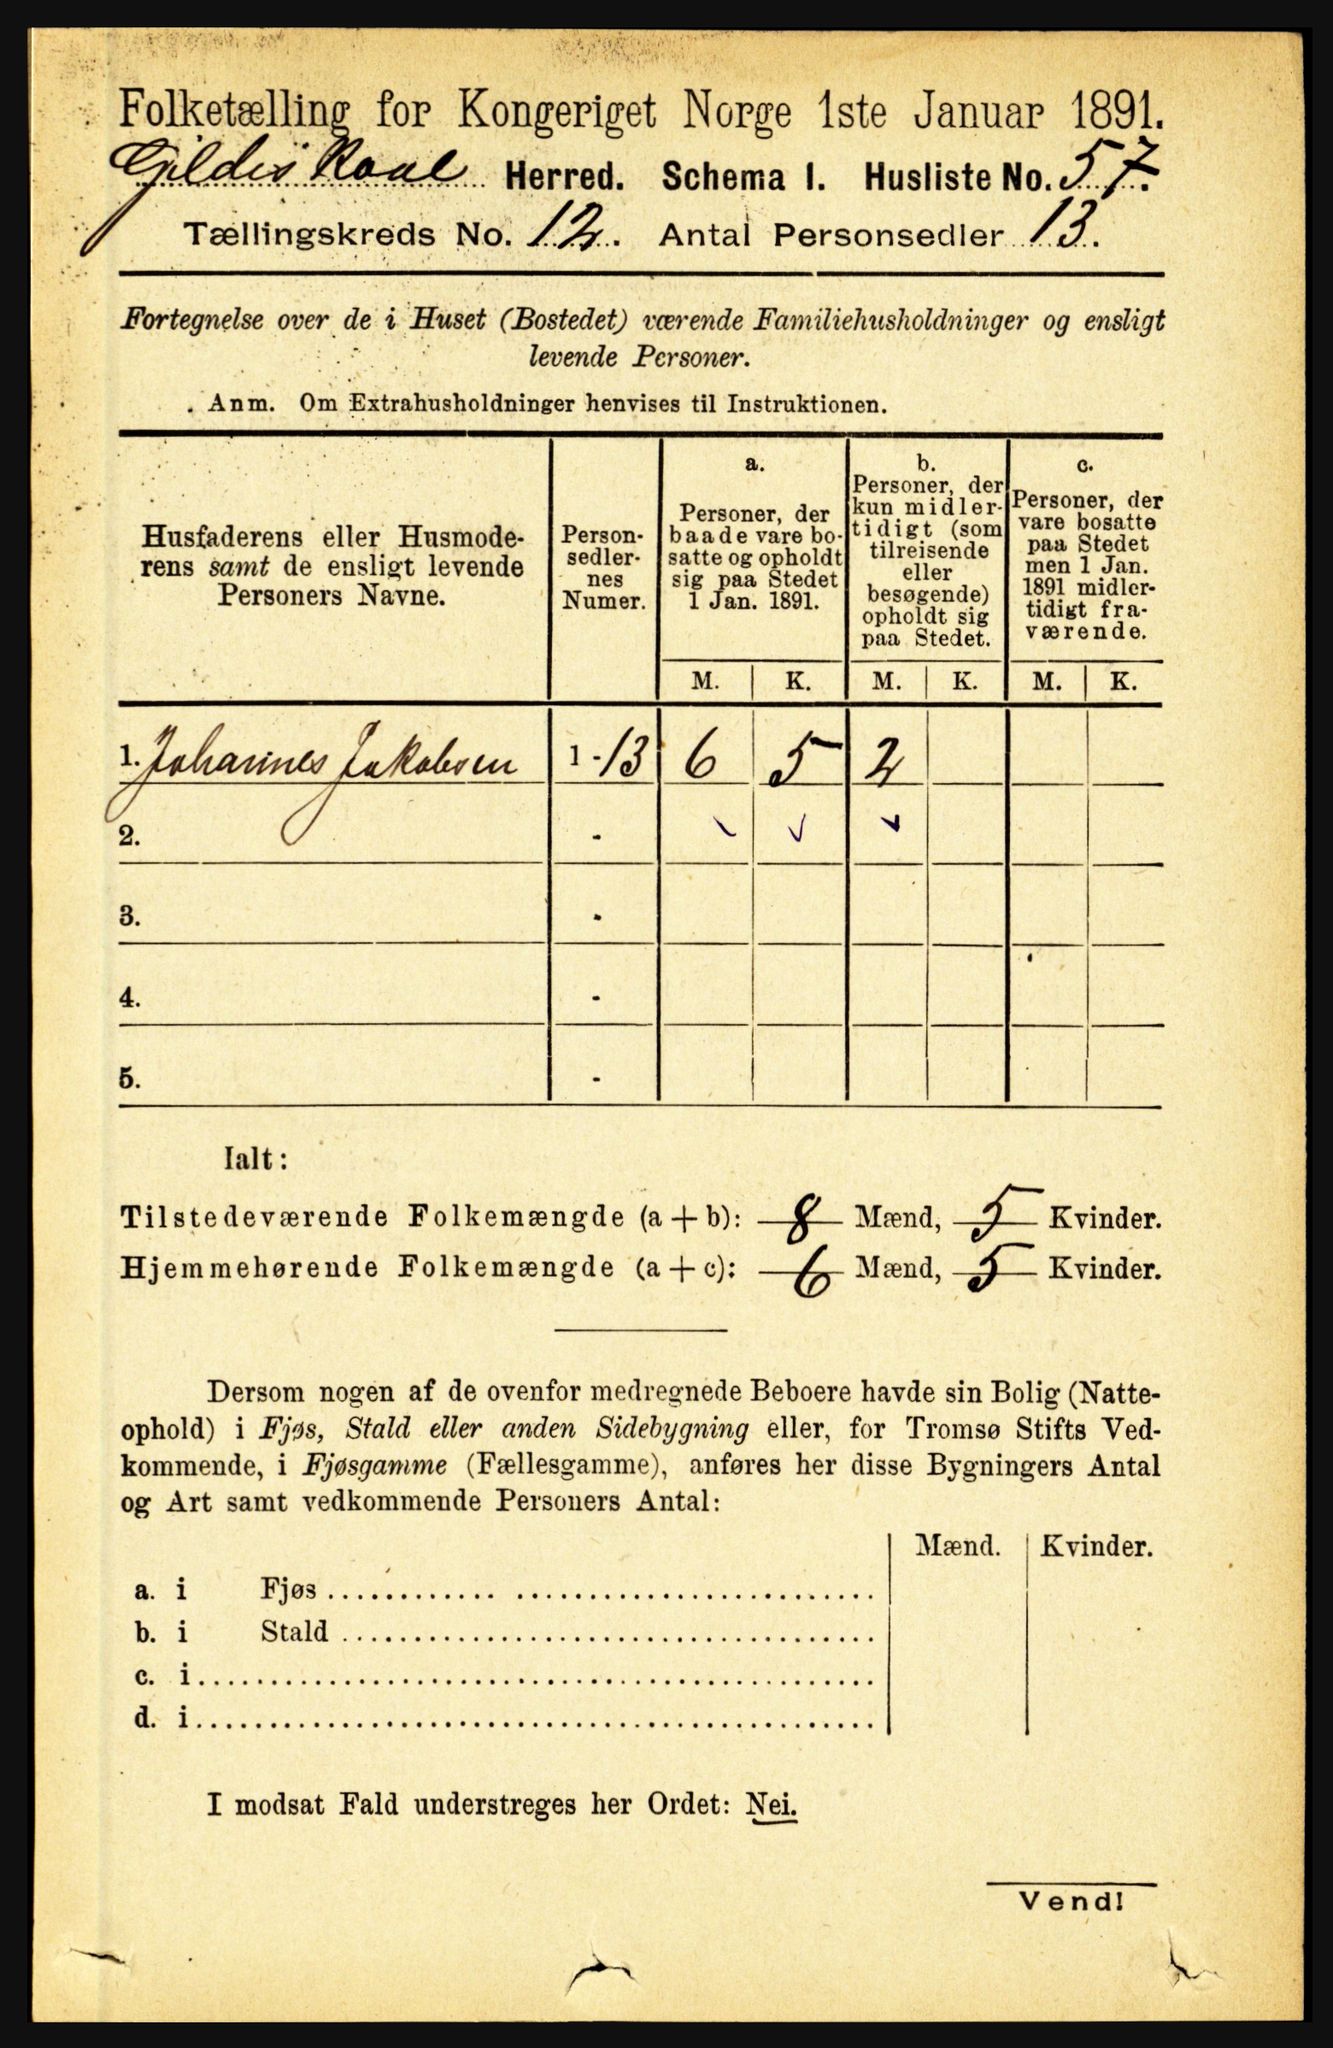 Folketælling for Kongeriget Norge 1ste Januar 1891.
Gildeskaal Herred. Schema I. Husliste No. 57.
Tællingskreds No. 12. Antal Personsedler 13.
Fortegnelse over de i Huset (Bostedet) værende Familiehusholdninger og ensligt
levende Personer.
Anm. Om Extrahusholdninger henvises til Instruktionen.
Husfaderens eller Husmode-
rens samt de ensligt levende
Personers Navne.
Person-
sedler-
nes
Numer.
a.
Personer, der
baade vare bo-
satte og opholdt
sig paa Stedet
1 Jan. 1891.
b.
Personer, der
kun midler-
tidigt (som
tilreisende
eller
besøgende)
opholdt sig
paa Stedet.
c.
Personer, der
vare bosatte
paa Stedet
men 1 Jan.
1891 midler-
tidigt fra-
værende.
M. K. M. K. M. K.
1. Johannes Jakobsen 1-13 6 5 2
2. -
3. -
4. -
5. -
Ialt:
Tilstedeværende Folkemængde (a + b): 8 Mænd, 5 Kvinder.
Hjemmehørende Folkemængde (a + c): 6 Mænd, 5 Kvinder.
Dersom nogen af de ovenfor medregnede Beboere havde sin Bolig (Natte-
ophold) i Fjøs, Stald eller anden Sidebygning eller, for Tromsø Stifts Ved-
kommende, i Fjøsgamme (Fællesgamme), anføres her disse Bygningers Antal
og Art samt vedkommende Personers Antal:
Mænd. Kvinder.
a. i Fjøs
b. i Stald
c. i
d. i
I modsat Fald understreges her Ordet: Nei.
Vend!